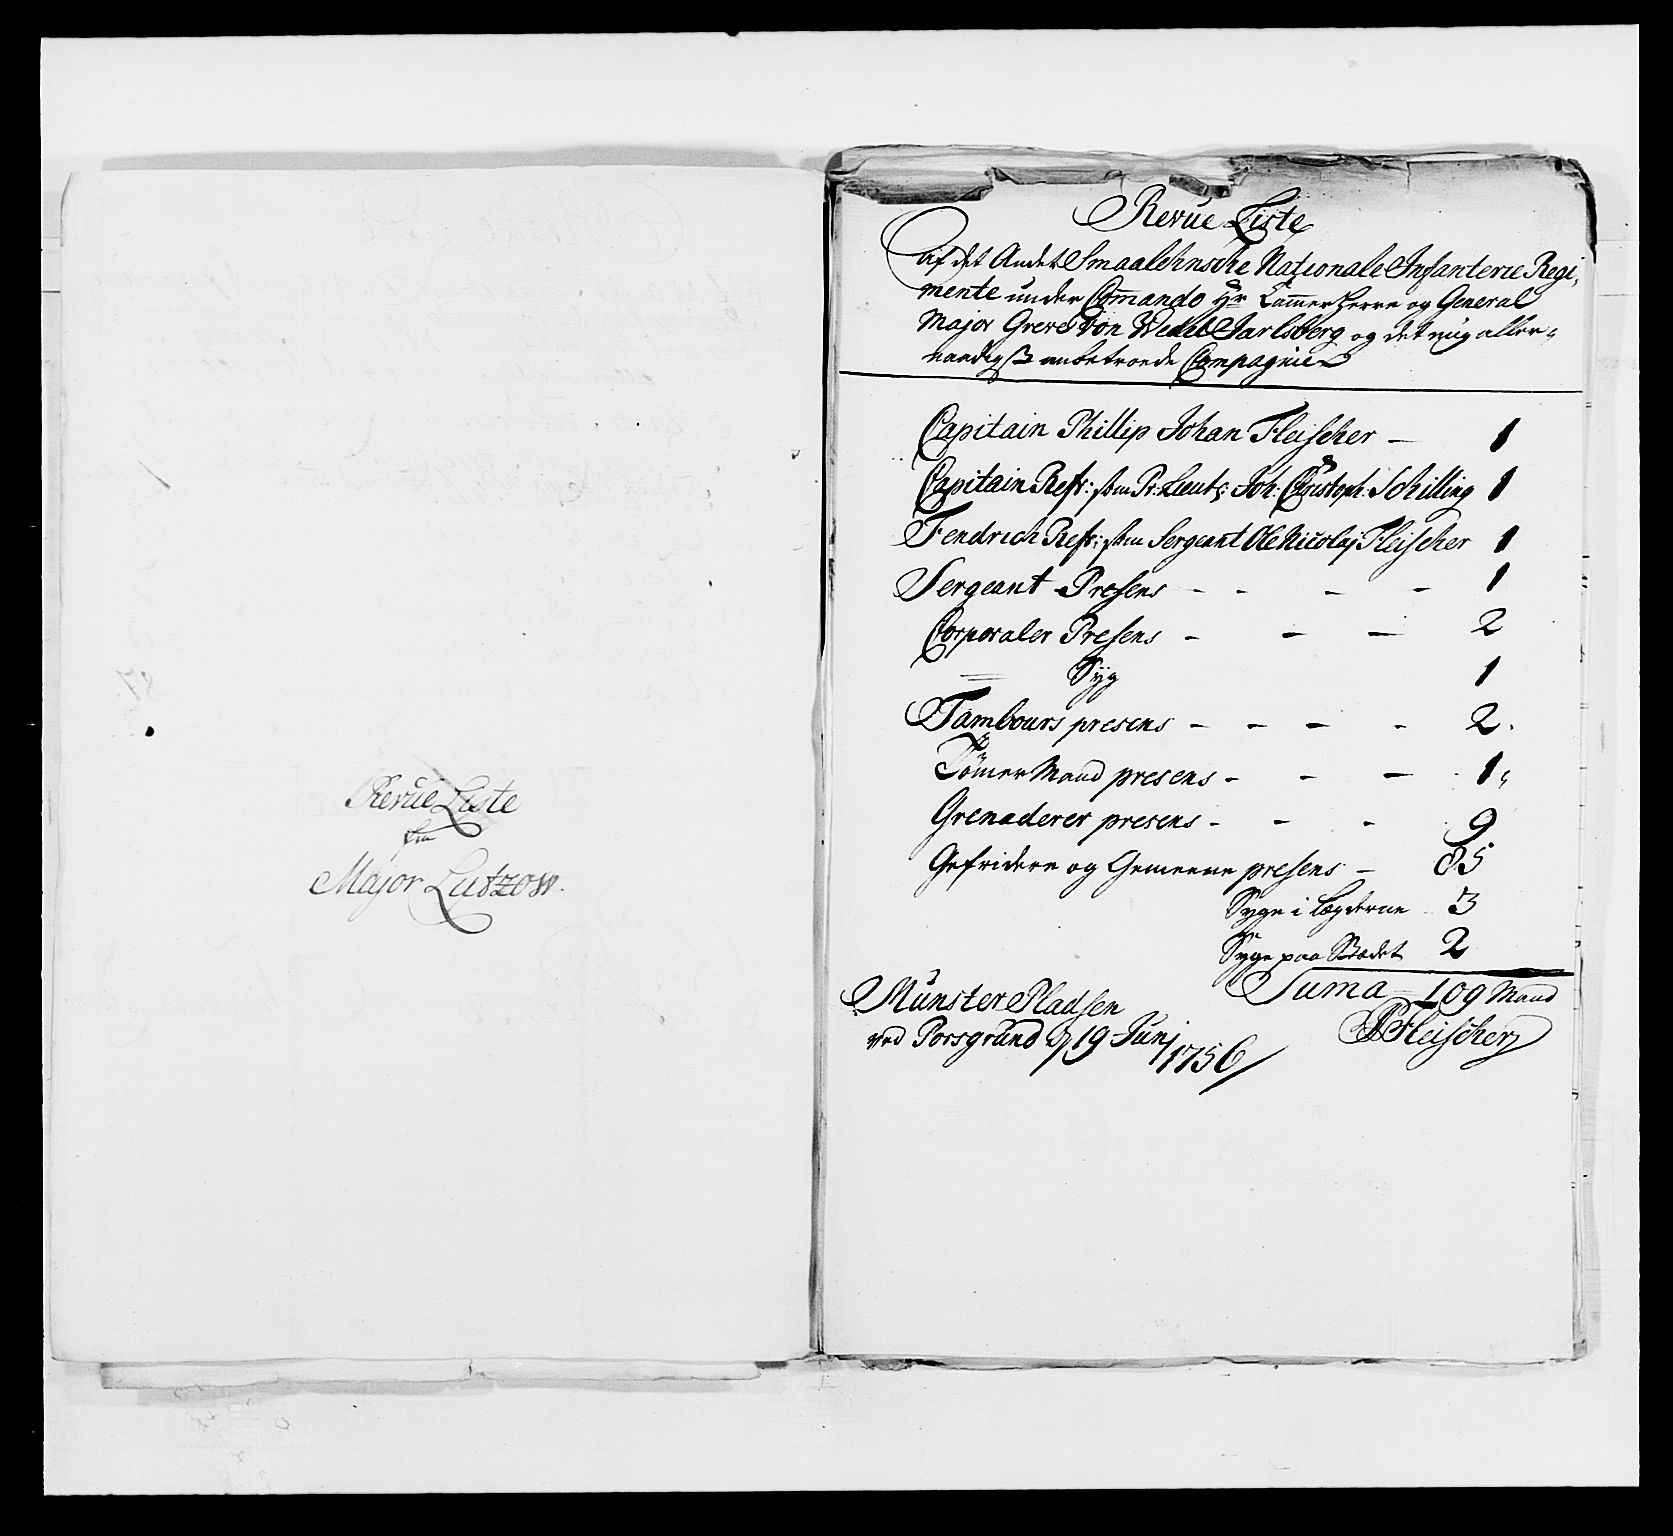 Revue Liste
fra
Major Lützow.
Revue Liste
af det Andet Smaalehnsche Nationale Infanterie Regi-
mente under Commando Hr Cammer Herre og General
Major Greve Von Wedel Jarlsberg og det mig aller-
naadigst anbetroede Compagnie
Capitain Phillip Johan Fleischer — 1
Capitain Refr: som Pr: Lieut: Joh: Christoph: Schilling 1
Fendrich Refr: som Sergeant Ole Nicolaj Fleischer 1
Sergeant Presens - - - - 1
Corporaler Presens - - - 2
= Syg 1
Tambours presens - - - - 2.
Tömer Mand presens - - - 1,
Grenaderer presens - - - 9
Gefridere og Gemeene presens - 85
Syge i Lægderne 3
Syge paa Stædet 2
Suma 109 Mand
Munster Pladsen
ved Porsgrund d 19 Junj
1756
PFleischer